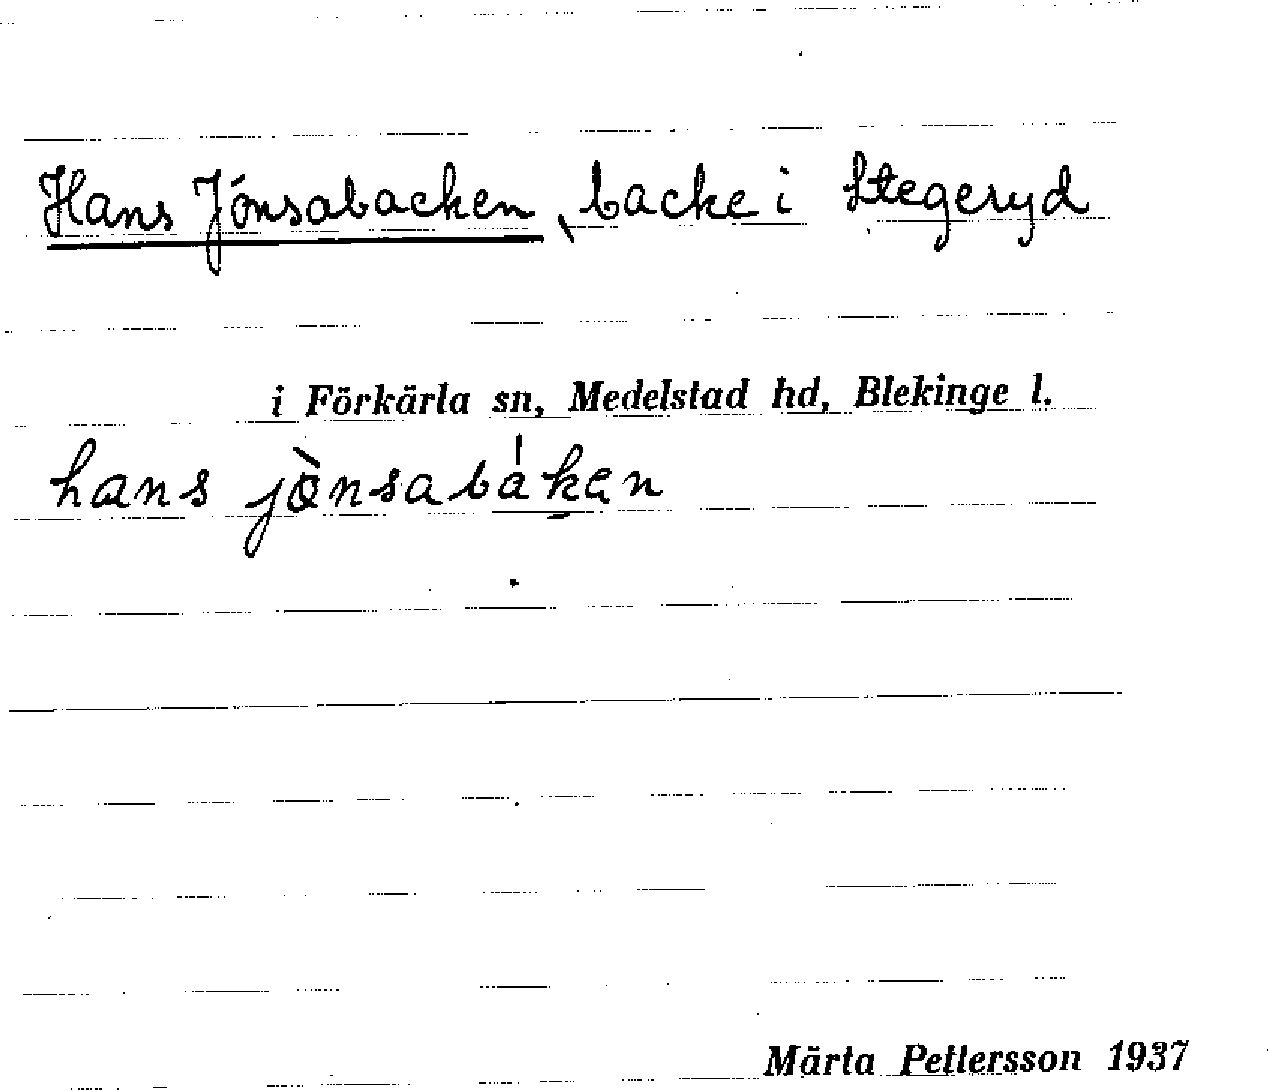 Hans Jönsabacken, backe i Stegeryd
i Förkärla sn, Medelstad hd, Blekinge l.
hans jònsabákan
Märta Pettersson 1937